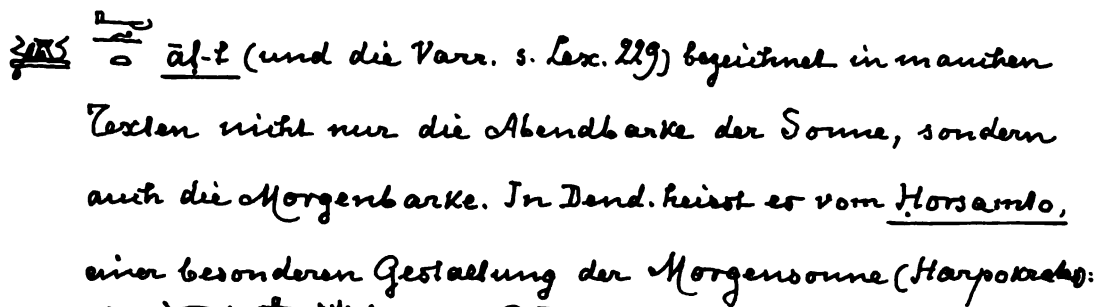 āf-t (und die Varr. s. Lex. 229) bezeichnet in manchen
Texten nicht nur die Abendbarke der Sonne, sondern
auch die Morgenbarke. In Dend. heisst es vom Horsamto,
einer besonderen Gestaltung der Morgensonne (Harpokrates):